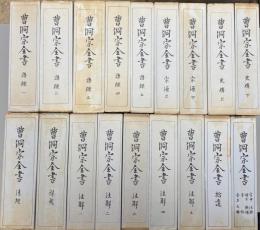 曹洞宗全書 語録 一
曹洞宗全書 語録 二
曹洞宗全書 語録 三
曹洞宗全書 語録 四
曹洞宗全書 語録 五
曹洞宗全書 宗源 上
曹洞宗全書 宗源 下
曹洞宗全書 史傳 上
曹洞宗全書 史傳 下
曹洞宗全書 清規
曹洞宗全書
曹洞宗全書 注解 一
曹洞宗全書 注解 二
曹洞宗全書 注解 三
曹洞宗全書 注解 四
曹洞宗全書 注解 五
曹洞宗全書 拾遺
曹洞宗全書